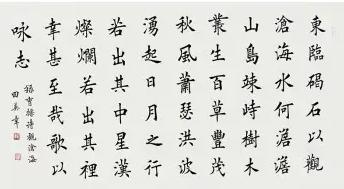 東臨碣石以觀
滄海水何澹澹
山島竦峙樹木
叢生百草豐茂
秋風蕭瑟洪波
湧起日月之行
若出其中星漢
燦爛若出其裡
幸甚至哉歌以
咏志
錄曹操詩觀滄海
田英章